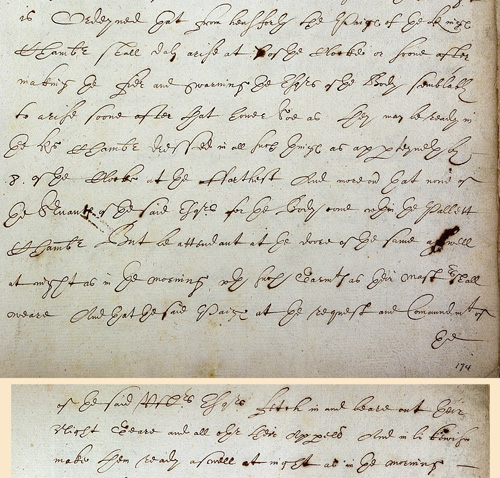 is Ordeyned that from hensforth the Paigs of the Kings
Chambr shall daly arise at 7 of the Clocke or soone after
making the fier and warning the Esqrs of the Body semblably
to arise soone after that hower soe as they may be ready in
the Ks Chambr dressed in all such things as apperteyneth by
8. of the Clocke at the farthest And moreovr that none of
the Servants of the said Esqrs for the Body come within the Pallett
Chambr But be attendant at the dore of the same aswell
at night as in the morning with such Garmts as their Mastrs shall
weare And that the said Paigs at the request and Commandmt of
the
174
of the said Esqrs fetch in and beare out their
Night Geare and all othr their Appell And in likewise
make them ready aswell at night as in the morning